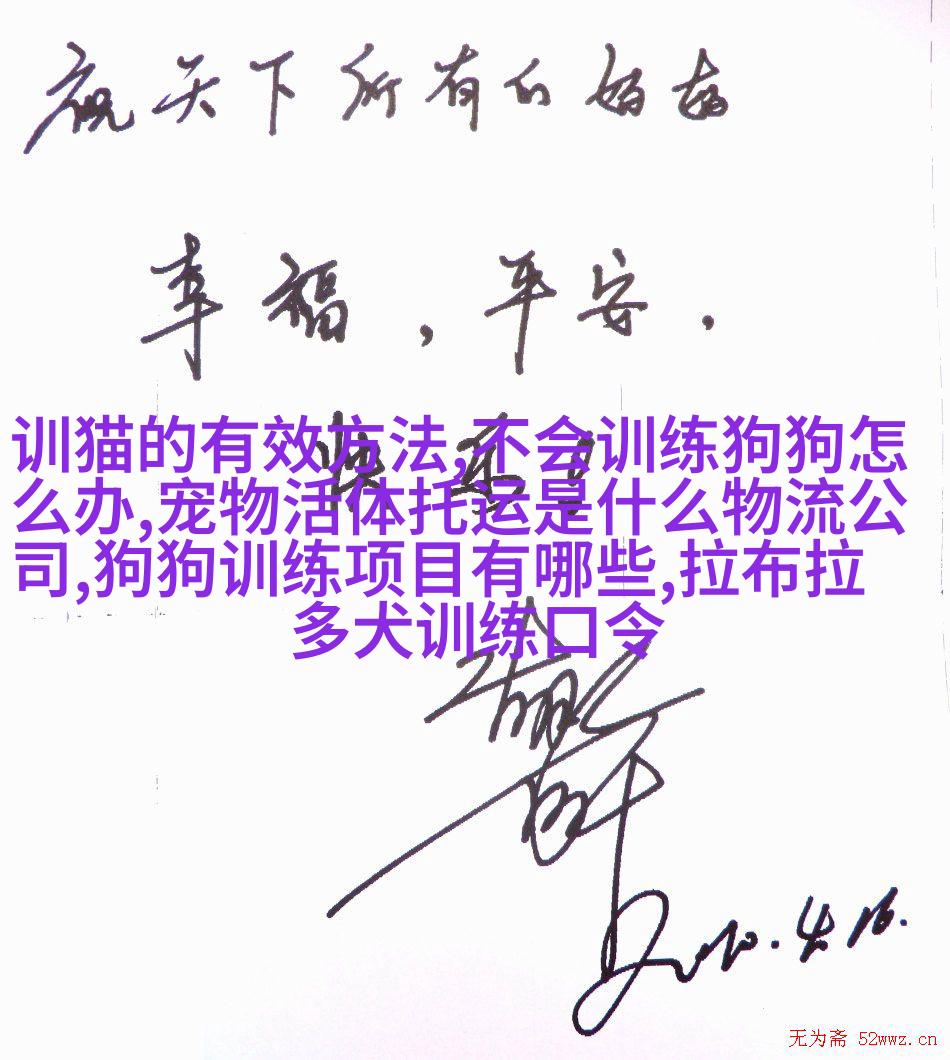 祝天下所有的妈妈
幸福，平安，
快乐！
训猫的有效方法,不会训练狗狗怎
么办,宠物活体托运是什么物流公
司,狗狗训练项目有哪些,拉布拉
多犬训练口令
2010.4.16.
无为斋 52wwz.cn